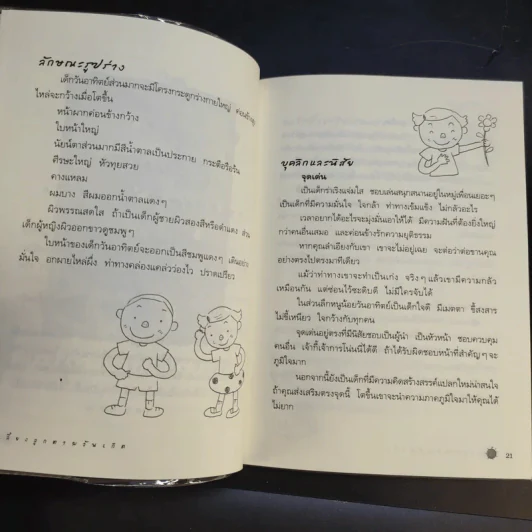 ลักษณะรูปร่าง
เด็กวันอาทิตย์ส่วนมากจะมีโครงกระดูกร่างกายใหญ่ ค่อนข้าง
ไหล่จะกว้างเมื่อโตขึ้น
หน้าผากค่อนข้างกว้าง
ใบหน้าใหญ่
นัยน์ตาส่วนมากมีสีน้ำตาลเป็นประกาย กระตือรือร้น
ศีรษะใหญ่ หัวทุยสวย
คางแหลม
ผมบาง สีผมออกน้ำตาลแดงๆ
ผิวพรรณสดใส ถ้าเป็นเด็กผู้ชายผิวสองสีหรือดำแดง ส่วน
เด็กผู้หญิงผิวออกขาวดูชมพูๆ
ใบหน้าของเด็กวันอาทิตย์จะออกเป็นสีชมพูแดงๆ เดินอย่าง
มั่นใจ อกผายไหล่ผึ่ง ท่าทางคล่องแคล่วว่องไว ปราดเปรียว
เลี้ยงลูกตามวันเกิด
บุคลิกและนิสัย
จุดเด่น
เป็นเด็กร่าเริงแจ่มใส ชอบเล่นสนุกสนานอยู่ในหมู่เพื่อนเยอะๆ
เป็นเด็กที่มีความมั่นใจ ใจกล้า ท่าทางเข้มแข็ง ไม่กลัวอะไร
เวลาอยากได้อะไรจะมุ่งมั่นเอาให้ได้ มีความฝันที่ต้องยิ่งใหญ่
กว่าคนอื่นเสมอ และค่อนข้างรักความยุติธรรม
หากคุณลำเอียงกับเขา เขาจะไม่อยู่เฉย จะต่อว่าต่อขานคุณ
อย่างตรงไปตรงมาทีเดียว
แม้ว่าท่าทางเขาจะทำเป็นเก่ง จริงๆ แล้วเขามีความกลัว
เหมือนกัน แต่ซ่อนไว้ซะมิบดี ไม่มีใครจับได้
ในส่วนลึกหนูน้อยวันอาทิตย์เป็นเด็กใจดี มีเมตตา ขี้สงสาร
ไม่ขี้เหนียว ใจกว้างกับทุกคน
จุดเด่นอยู่ตรงที่มีนิสัยชอบเป็นผู้นำ เป็นหัวหน้า ชอบควบคุม
คนอื่น เจ้ากี้เจ้าการโน่นนี่ได้ดี ถ้าได้รับผิดชอบหน้าที่สำคัญๆ จะ
ภูมิใจมาก
นอกจากนี้ยังเป็นเด็กที่มีความคิดสร้างสรรค์แปลกใหม่น่าสนใจ
ถ้าคุณส่งเสริมตรงจุดนี้ โตขึ้นเขาจะนำความภาคภูมิใจมาให้คุณได้
ไม่ยาก
21